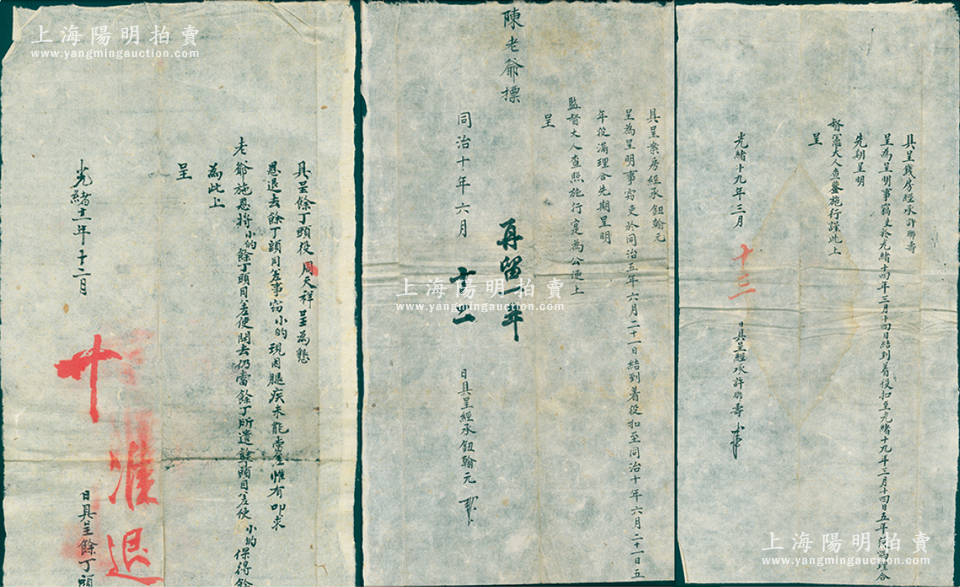 具呈錢房經承許聯壽
呈為呈明事竊吏於光緒十四年三月十四日結到着役扣至光緒十九年三月十四日五年役滿理合
先期呈明
督憲大人查鑒施行謹此上
呈
光緒十九年三月 十三 日具呈經承許聯壽
陳老爺標
具呈案房經承鈕翰元
呈為呈明事竊吏於同治五年六月二十一日結到着役扣至同治十年六月二十一日五
年役滿理合先期呈明
監督大人查照施行實為公便上
呈
再留一年
同治十年六月 日具呈經承鈕翰元
具呈餘丁頭役周天祥呈為懇
恩退去餘丁頭目差事窃小的現因腿疾未能當差惟有叩求
老爺施恩將小的餘丁頭目差使開去仍當餘丁所遺餘丁頭目差使小的保得餘
為此上
呈
光緒十一年十二月 十 日具呈餘丁頭
准退
上海陽明拍賣
www.yangmingauction.com
上海陽明拍賣
www.yangmingauction.com
上海陽明拍賣
www.yangmingauction.com
上海陽明拍賣
www.yangmingauction.com
上海陽明拍賣
www.yangmingauction.com